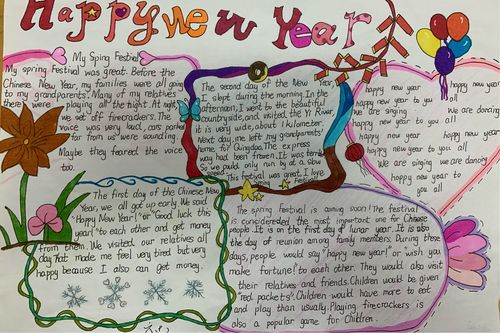 Happy New Year
My Sping Festival
My spring Festival was great. Before the
Chinese New Year, my families were all going
to my grandparents'. Many of my relatives
there were playing all the night. At night,
we set off firecrackers. The
voice was very loud, cars parked
far from us were sounding.
Maybe they feared the voice
too.
The second day of the New Year,
I slept during the morning. In the
afternoon, I went to the beautiful
countryside, and visited the Yi River,
it is very wide, about 1 kilometer.
Next day, we left my grandparents'
home for Qingdao. The express
way had been frozen. It was terrible.
So we could only run by a slow
speed. This festival was great. I love
Spring Festival
happy new year
happy new year to you all
we are singing we are dancing
happy new year to you
all
happy new year happy new year
happy new year to you all
We are singing we are dancing
happy new year to
you all
The first day of the Chinese New
Year, we all got up early. We said
"Happy New Year!" or "Good luck this
year" to each other and get money
from them. We visited our relatives all
day that made me feel very tired but very
happy because I also can get money.
The spring festival is coming soon! The festival
is considereded the most important one for Chinese
people. It is on the first day of lunar year. It is also
the day of reunion among family members. During these
days, people would say "happy new year!" or wish you
make fortune! to each other. They would also visit
their relatives and friends. Children would be given
"red packets". Children would have more to eat
and play than usually. Playing firecrackers is
also a popular game for Children.